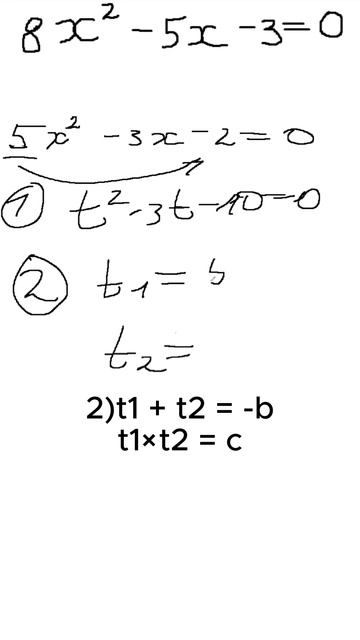 8x² - 5x - 3 = 0
5x² - 3x - 2 = 0
① t² - 3t - 10 = 0
② t₁ = 5
t₂ =
2)t1 + t2 = -b
t1×t2 = c